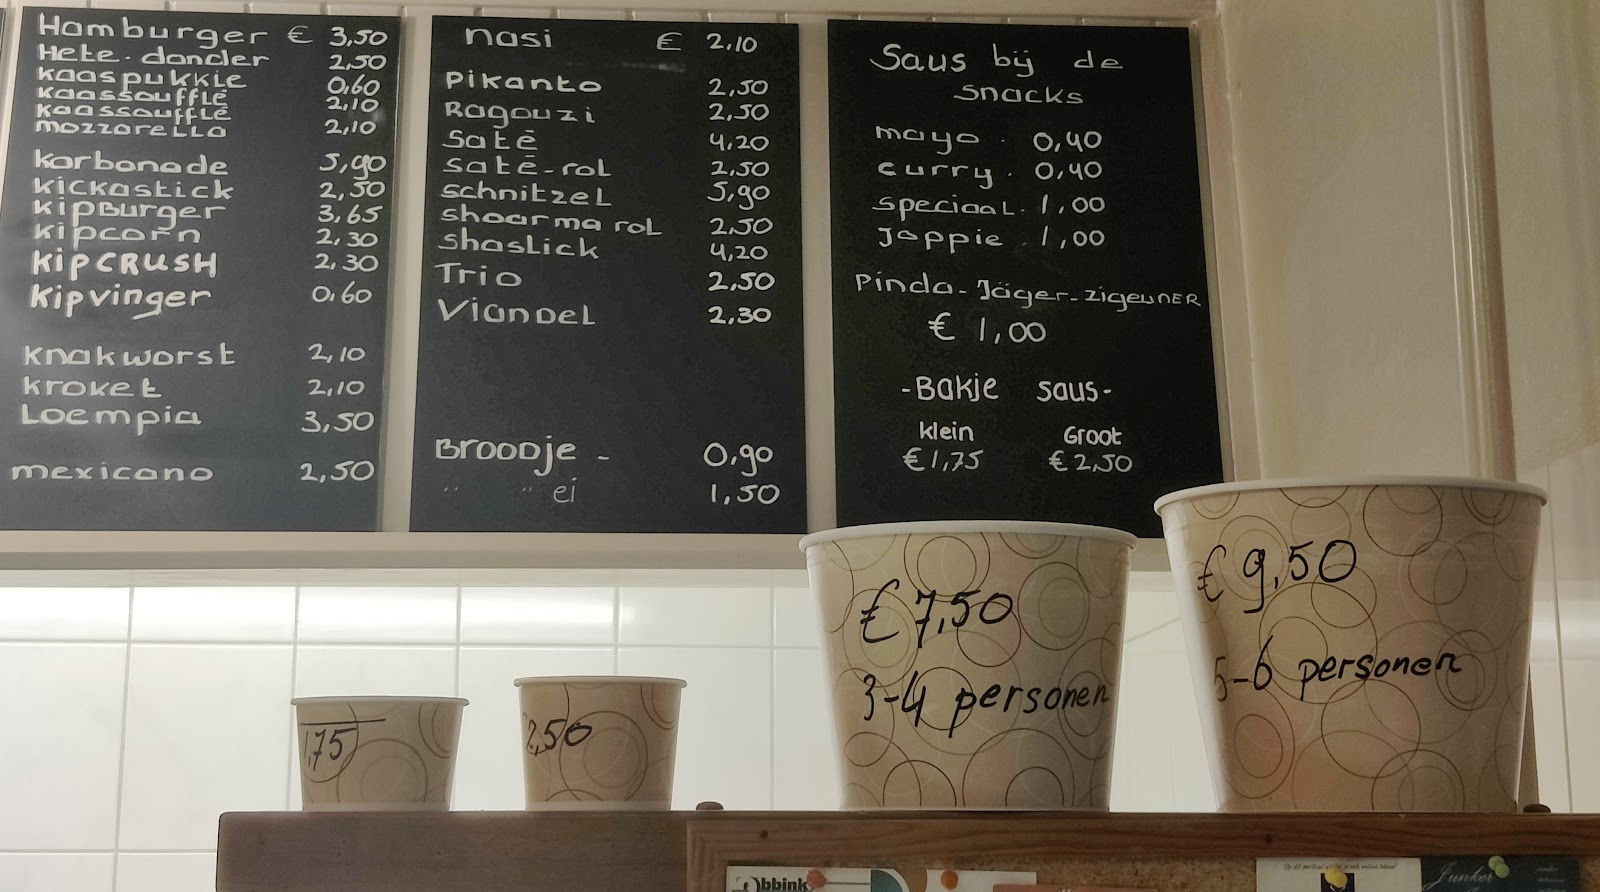 Hamburger € 3,50
Hete-donder 2,50
kaaspukkie 0,60
kaassoufflé 2,10
kaassoufflé
mozzarella 2,10
karbonade 5,90
kickastick 2,50
kipburger 3,65
kipcorn 2,30
KipCRUSH 2,30
Kipvinger 0,60
knakworst 2,10
kroket 2,10
Loempia 3,50
mexicano 2,50
nasi € 2,10
pikanto 2,50
Ragouzi 2,50
saté 4,20
saté-rol 2,50
schnitzel 5,90
shoarma rol 2,50
shaslick 4,20
Trio 2,50
Viandel 2,30
Broodje - 0,90
" " ei 1,50
Saus bij de
snacks
mayo . 0,40
curry . 0,40
speciaal . 1,00
Joppie . 1,00
Pinda - Jäger - zigeuner
€ 1,00
- Bakje saus -
klein Groot
€ 1,75 € 2,50
1,75
2,50
€ 7,50
3-4 personen
€ 9,50
5-6 personen
Obbink
Junker